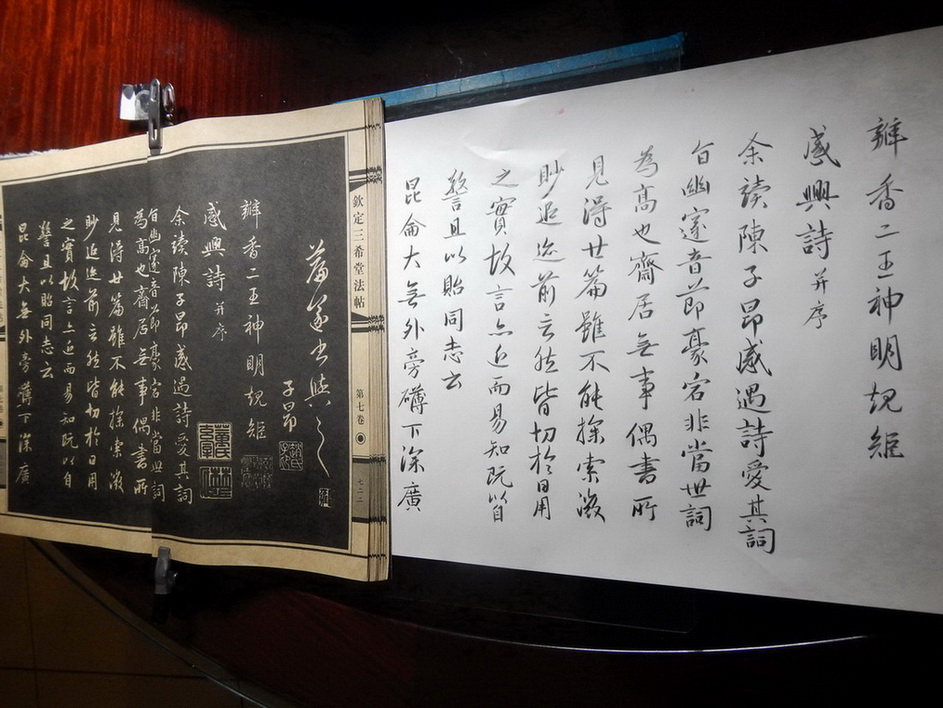 辦香二王神明規矩
感興詩 并序
余讀陳子昂感遇詩愛其詞
旨幽邃音節豪宕非當世詞
為高也齋居無事偶書所
見得廿篇雖不能探索微
眇追迹前言然皆切於日用
之實故言亦近而易知既以自
警且以貽同志云
昆侖大無外旁礴下深廣
欽定三希堂法帖
第七卷
七二二
書與之
子昂
辦香二王神明規矩
感興詩 并序
余讀陳子昂感遇詩愛其詞
旨幽邃音節豪宕非當世詞
為高也齋居無事偶書所
見得廿篇雖不能探索微
眇追迹前言然皆切於日用
之實故言亦近而易知既以自
警且以貽同志云
昆侖大無外旁礴下深廣